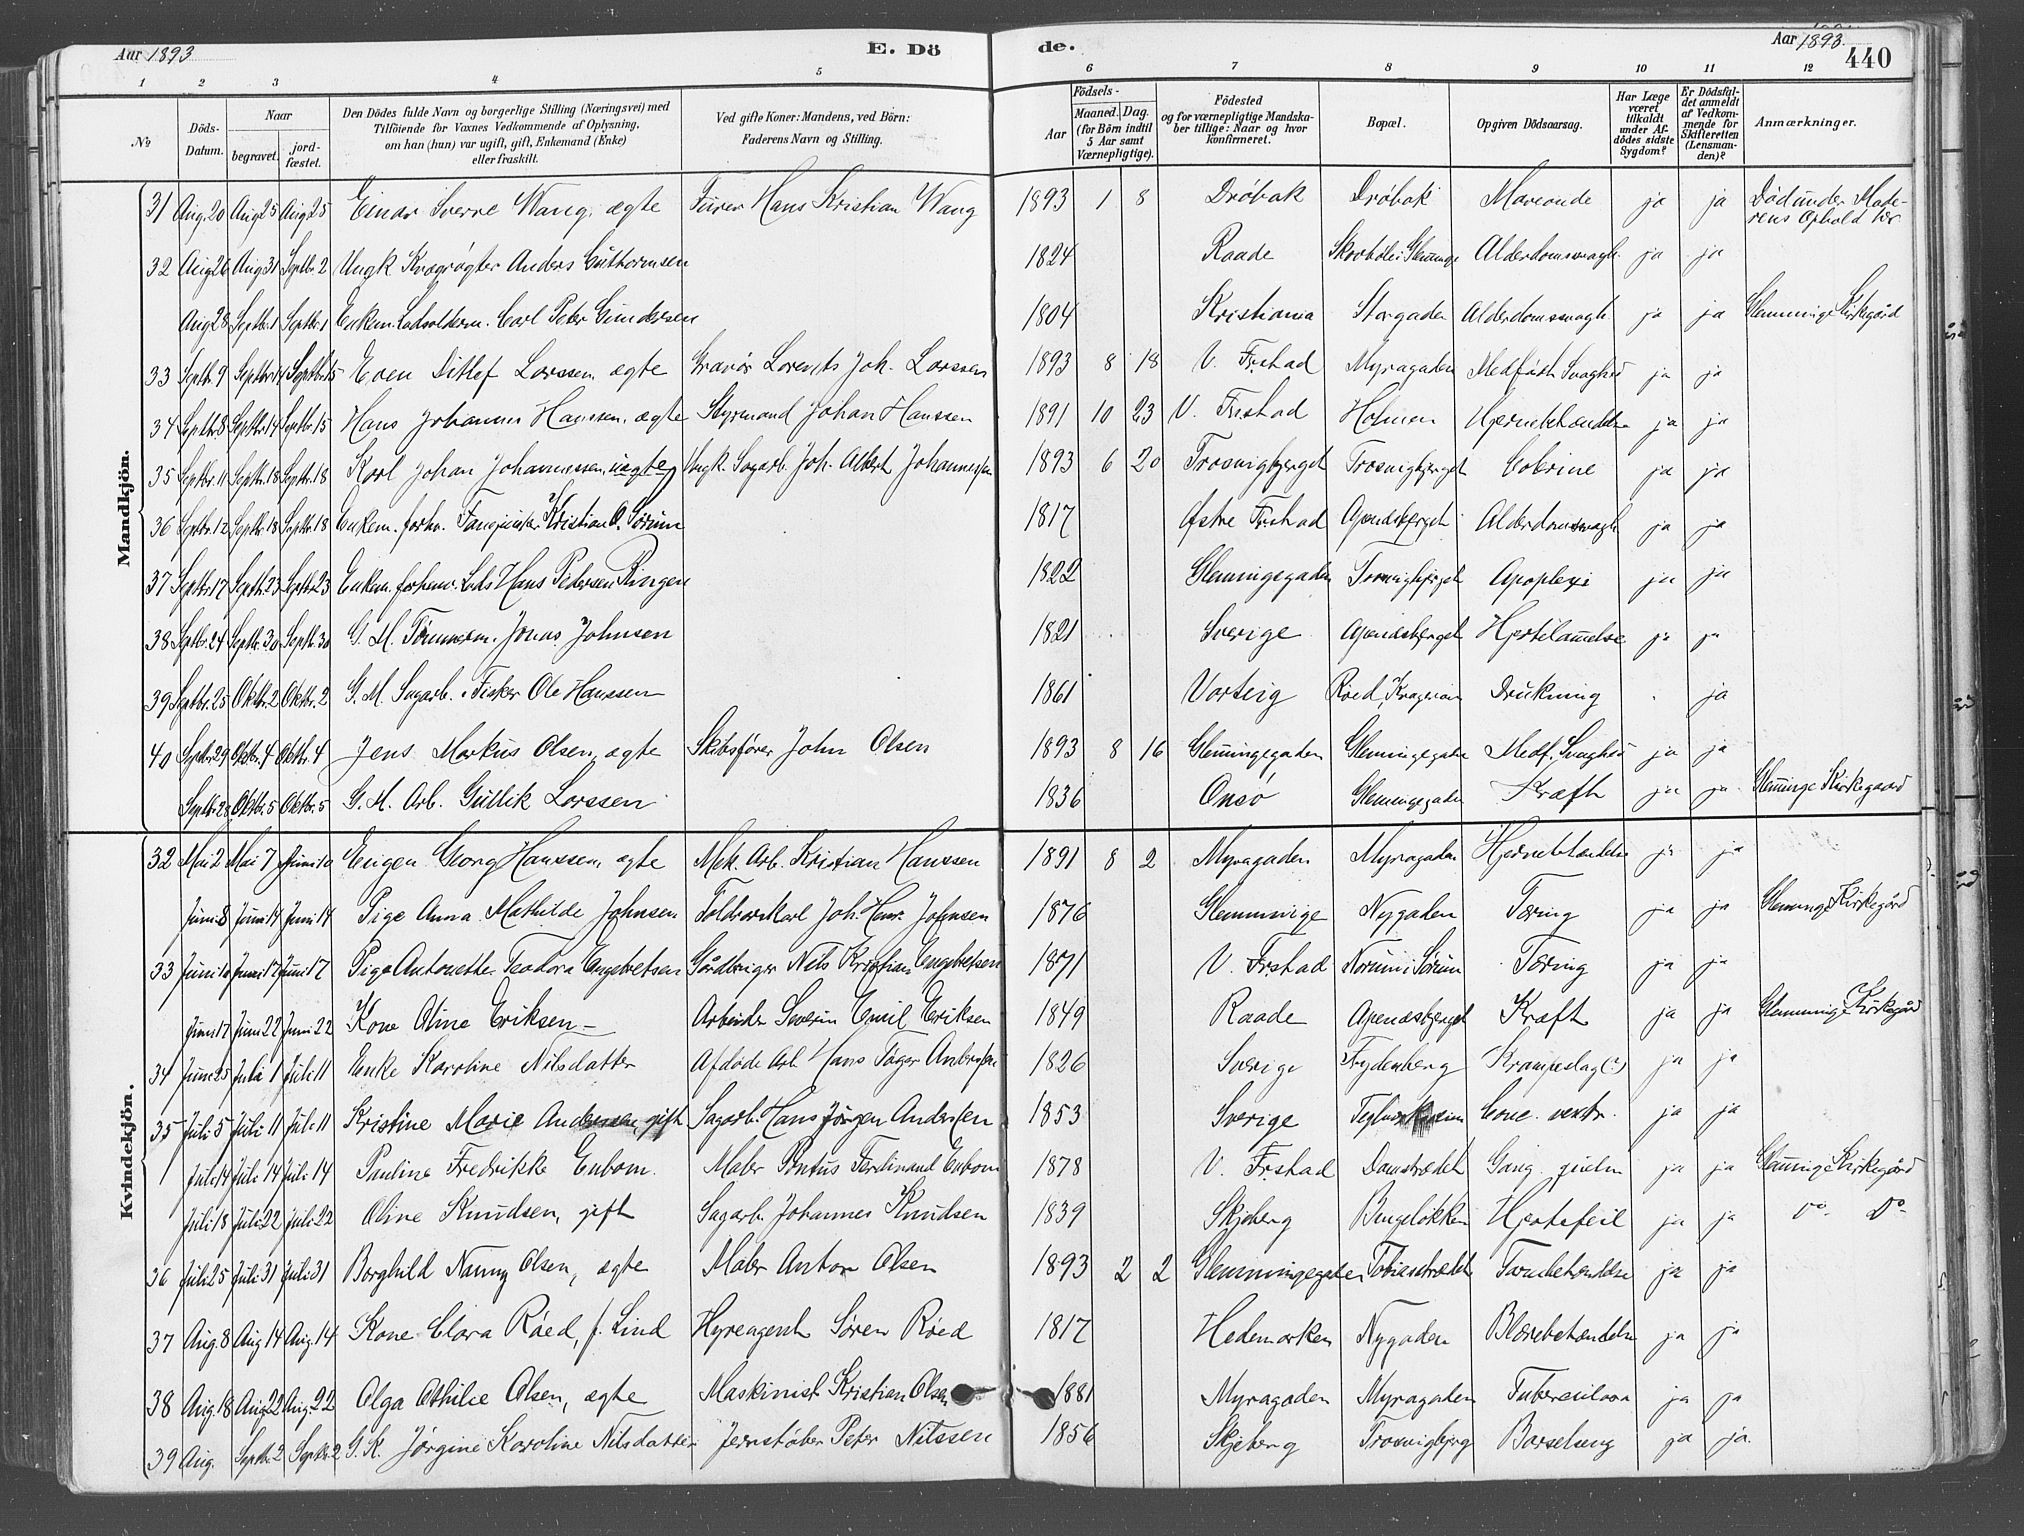 Aar 1893 E. Dö de. Aar 1893. 440
1 2 3 4 5 6 7 8 9 10 11 12
№ Döds-Datum. Naar begravet. jord-fæstet. Den Dödes fulde Navn og borgerlige Stilling (Næringsvei) med Tilföiende for Voxnes Vedkommende af Oplysning, om han (hun) var ugift, gift, Enkemand (Enke) eller fraskilt. Ved gifte Koner: Mandens, ved Börn: Faderens Navn og Stilling. Födsels- Aar Maaned. Dag. (for Börn indtil 5 Aar samt Værnepligtige). Födested og for værnepligtige Mandska-ber tillige: Naar og hvor konfirmeret. Bopæl. Opgiven Dödsaarsag. Har Læge været tilkaldt under Af-dödes sidste Sygdom? Er Dödsfal-det anmeldt af Vedkom-mende for Skifteretten (Lensman-den)? Anmærkninger.
Mandkjön.
31 Aug. 20 Aug 25 Aug 25 Einar Sverre Wang, ægte Furer Hans Kristian Wang 1893 1 8 Dröbak Dröbak ja ja Död under Mode-rens Ophold her
32 Aug 26 Aug 31 Septbr 2 Ungk Kvægrögter Anders Guthormsen 1824 Raade Alderdomssvagh. ja ja
Aug 28 Septbr 1 Septbr 1 Enkem. Carl Peter Gundersen 1804 Kristiania Storgaden Alderdomssvagh ja ja Glemminge Kirkegård
33 Septbr 9 Septbr 14 Septbr 15 Even Ditlef Larssen, ægte Lorents Joh. Larssen 1893 8 18 V. Frstad Myragaden Medfödt Svaghed ja ja
34 Septbr 8 Septbr 14 Septbr 15 Hans Johannes Hanssen, ægte Styrmand Johan Hanssen 1891 10 23 V. Frstad Holmen Hjernebetændelse ja ja
35 Septbr 11 Septbr 18 Septbr 18 Karl Johan Johannessen, uægte Ungk. Sagarb. Joh. Albert Johannessen 1893 6 20 Trosvigbjerget Trosvigbjerget Colerine ja ja
36 Septbr 12 Septbr 18 Septbr 18 Enkem. forhv. Kristian O. Sörum 1817 Östre Frstad Apenæsberget Alderdomssvagh ja ja
37 Septbr 17 Septbr 23 Septbr 23 Enkem. forhenv. Lds Hans Pedersen Ringen 1822 Glemmingegaden Trosvigbjerget Apoplexi ja ja
38 Septbr. 24 Septbr 30 Septbr. 30 G. M. Tömmerm. Jonas Johnsen 1821 Sverige Apenæsberget Hjertelammelse ja ja
39 Septbr. 25 Oktbr. 2 Oktbr. 2 G. M. Sagarb. Fisker Ole Hanssen 1861 Varteig Röed, Kragerøen Drukning ja
40 Septbr 29 Oktbr. 4 Oktbr. 4 Jens Markus Olsen, ægte Skibsförer John Olsen 1893 8 16 Glemmingegaden Glemmingegaden Medf. Svaghed ja ja
Septbr 28 Oktbr. 5 Oktbr. 5 G. M. Arb. Gullik Larssen 1836 Onsö Glemmingegaden Kræft ja ja Glemminge Kirkegaard
Kvindekjön.
32 Mai 2 Mai 7 Juni 10 Eugen Georg Hanssen, ægte Mek. Arb. Kristian Hanssen 1891 8 2 Myragaden Myragaden Hjernebetændelse ja ja
Juni 8 Juni 14 Juni 14 Pige Anna Mathilde Johnsen Joh. Hanr. Johnsen 1876 Glemminge Nygaden Tæring ja ja Glemminge Kirkegård
33 Juni 10 Juni 17 Juni 17 Pige Antonette Teodora Engebretsen Gårdbruger Nils Kristian Engebretsen 1871 V. Frstad Norum i Sörum Tæring ja ja
Juni 17 Juni 22 Juni 22 Kone Oline Eriksen – Arbeider Severin Emil Eriksen 1849 Raade Apenæsberget Kræft ja ja Glemminge Kirkegård
34 Juni 25 Juli 1 Juli 11 Enke Karoline Nilsdatter Afdöde Arb. Hans 1826 Sverige Frydenberg Krampeslag (?) ja ja
35 Juli 5 Juli 11 Juli 11 Kristine Marie Andersen, gift Sagarb. Hans Jörgen Andersen 1853 Sverige ja ja
1 Juli 14 Juli 14 Juli 14 Pauline Fredrikke Enbom. Maler Pontus Ferdinand Enbom 1878 V. Frstad Damstrædet ja ja Glemminge Kirkegård
Juli 18 Juli 22 Juli 22 Oline Knudsen, gift Sagarb. Johannes Knudsen 1839 Skjeberg Bingeløkken Hjertefeil ja ja Do. Do
36 Juli 25 Juli 31 Juli 31 Borghild Nanny Olsen, ægte Maler Anton Olsen 1893 2 2 Glemmingegaden Tobiasstrædet Tarmbetændelse ja ja
37 Aug. 8 Aug 14 Aug. 14 Kone Clara Röed, f. Lind Hyreagent Sören Röed 1817 Hedemarken Nygaden Blærebetændelse ja ja
38 Aug. 18 Aug 22 Aug. 22 Olga Othilie Olsen, ægte Maskinist Kristian Olsen 1881 Myragaden Myragaden ja ja
39 Aug. Septbr 2 Septbr. 2 G. K. Jörgine Karoline Nilsdatter Jernstöber Peter Nilssen 1856 Skjeberg Trosvigbjerg Barselseng ja ja.